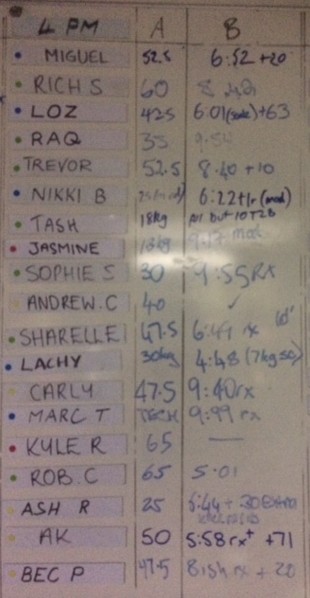 4 PM A B
MIGUEL 52.5 6:52 +20
RICH S 60 8
LOZ 42.5 6:01 +63
RAQ 35 9:5
TREVOR 52.5 8:40 +10
NIKKI B 6:22 + (mod)
TASH 18kg but 10T2B
JASMINE mod
SOPHIE S 30 9:55 RX
ANDREW.C 40 ✓
SHARELLE 47.5 6:49 rx
LACHY 30kg 4:48 (7kg
CARLY 47.5 9:40 rx
MARC T TECH 9:99 rx
KYLE R 65 —
ROB.C 65 5:01
ASH R 25 6:44 + 30
AK 50 5:58 rx+ +71
BEC P 47.5 rx + 20